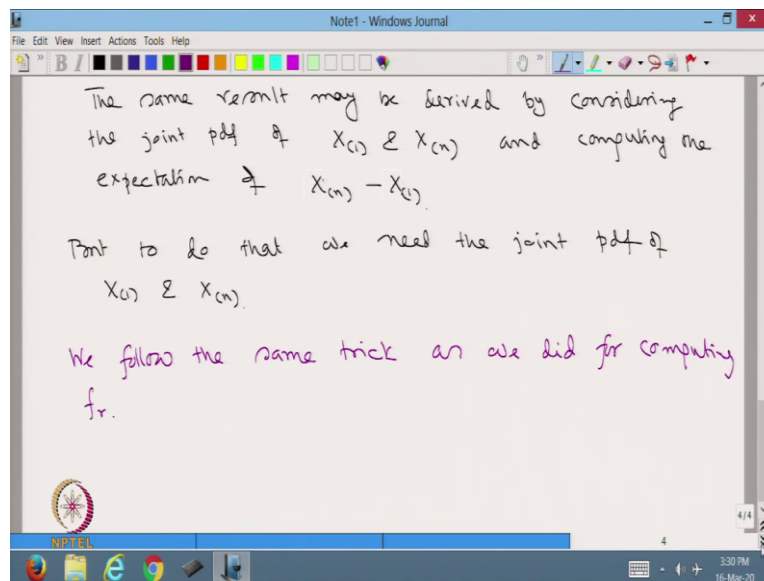 Note1 - Windows Journal
File Edit View Insert Actions Tools Help
The same result may be derived by considering
the joint pdf of X(1) & X(n) and computing the
expectation of X(n) - X(1)
But to do that we need the joint pdf of
X(1) & X(n).
We follow the same trick as we did for computing
fr.
4/4
NPTEL
4
3:30 PM
16-Mar-20